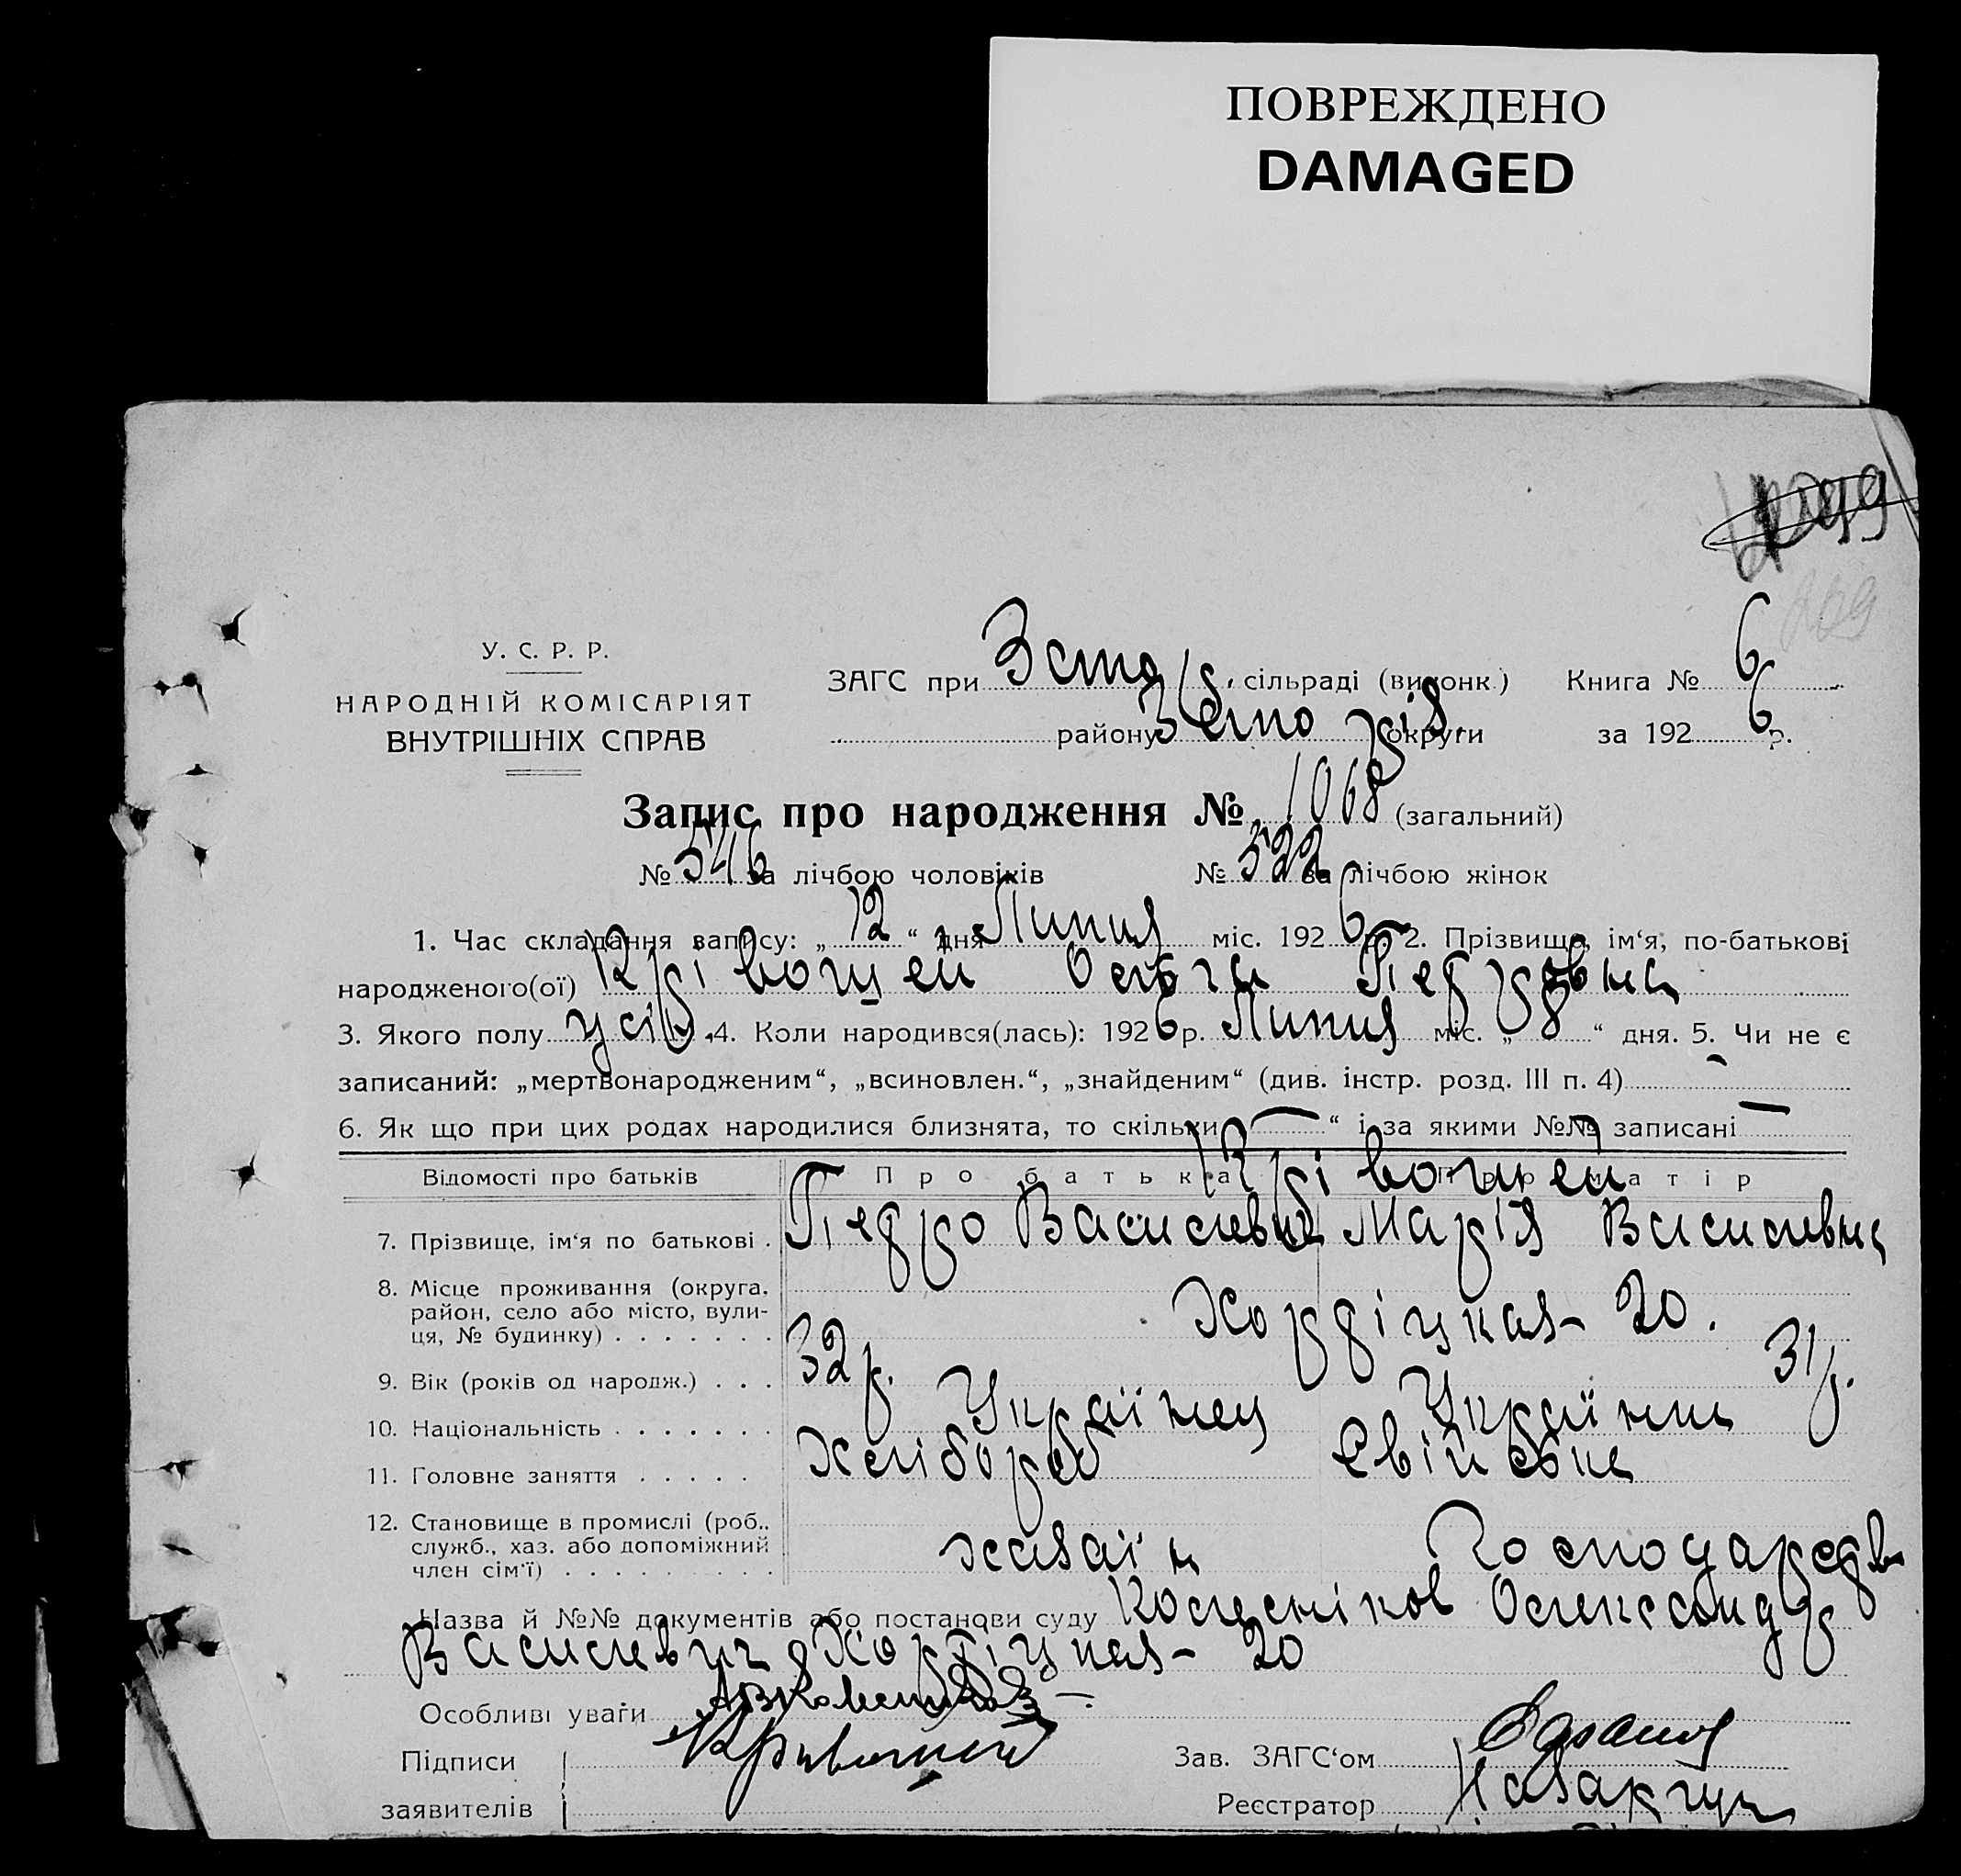 ПОВРЕЖДЕНО
DAMAGED
У. С. Р. Р.
НАРОДНІЙ КОМІСАРІЯТ
ВНУТРІШНІХ СПРАВ
ЗАГС при сільраді (виконк.) Книга № 6
району округи за 1926 р.
Запис про народження № 1068 (загальний)
№ 546 за лічбою чоловіків № 522 за лічбою жінок
1. Час складання запису: „12“ дня Липня міс. 1926 р. 2. Прізвище, ім‘я, по-батькові
народженого(ої) Крівошей Ольга Педровна
3. Якого полу 4. Коли народився(лась): 1926 р. Липня міс. „8“ дня. 5. Чи не є
записаний: „мертвонародженим“, „всиновлен.“, „знайденим“ (див. інстр. розд. III п. 4) —
6. Як що при цих родах народилися близнята, то скільки „—“ і за якими №№ записані —
Відомості про батьків Про батька Про матір
Крівошей
7. Прізвище, ім‘я по батькові . Педро Василевич Марія Василевна
8. Місце проживання (округа, район, село або місто, вули-
ця, № будинку) . . . . . . . Хордіцкая – 20.
9. Вік (років од народж.) . . . 32 р. 31 р.
10. Національність . . . . . . . Українец Українка
11. Головне заняття . . . . . Хлібороб
12. Становище в промислі (роб.,
служб., хаз. або допоміжний
член сім‘ї) . . . . . . . . . хазаїн Господарств
Назва й №№ документів або постанови суду Колесніков Олександр
Василевич Хортіцкая – 20
Особливі уваги
Підписи Кривошей Зав. ЗАГС‘ом
заявителів Реєстратор